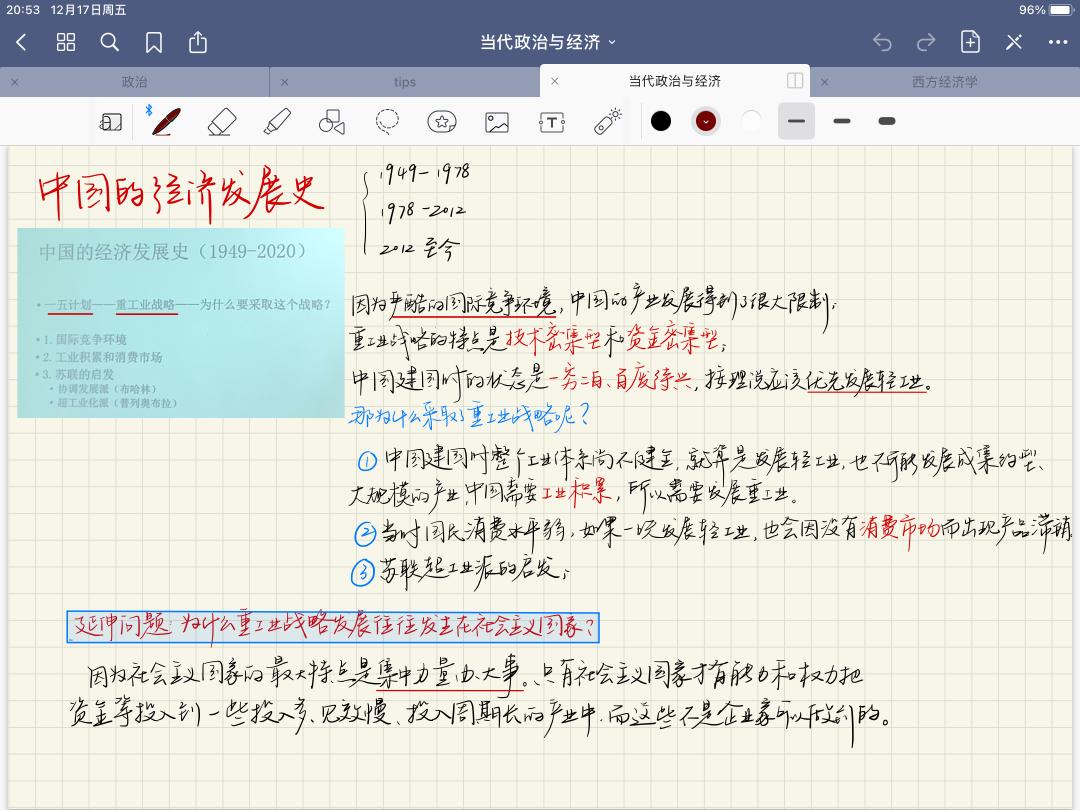 20:53 12月17日周五
96%
当代政治与经济
政治
tips
当代政治与经济
西方经济学
中国的经济发展史
1949-1978
1978-2012
2012 至今
中国的经济发展史（1949-2020）
• 一五计划——重工业战略——为什么要采取这个战略？
• 1. 国际竞争环境
• 2. 工业积累和消费市场
• 3. 苏联的启发
• 协调发展派（布哈林）
• 超工业化派（普列奥布拉）
因为严酷的国际竞争环境，中国的产业发展得到了很大限制；
重工业战略的特点是技术密集型和资金密集型；
中国建国时的状态是一穷二白、百废待兴，按理说应该优先发展轻工业。
那为什么采取了重工业战略呢？
① 中国建国时整个工业体系尚不健全，就算是发展轻工业，也不可能发展成集约型、
大规模的产业，中国需要工业积累，所以需要发展重工业。
② 当时国民消费水平弱，如果一味发展轻工业，也会因没有消费市场而出现产品滞销
③ 苏联超工业派的启发；
延伸问题：为什么重工业战略发展往往发生在社会主义国家？
因为社会主义国家的最大特点是集中力量办大事。只有社会主义国家才有能力和权力把
资金等投入到一些投入多、见效慢、投入周期长的产业中，而这些不是企业家可以做到的。